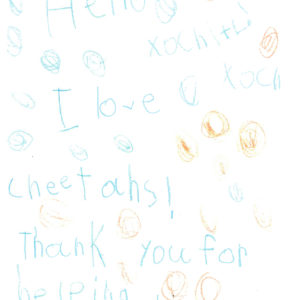 Hello
xochitl!
I love xoch
cheetahs!
Thank you for
helping